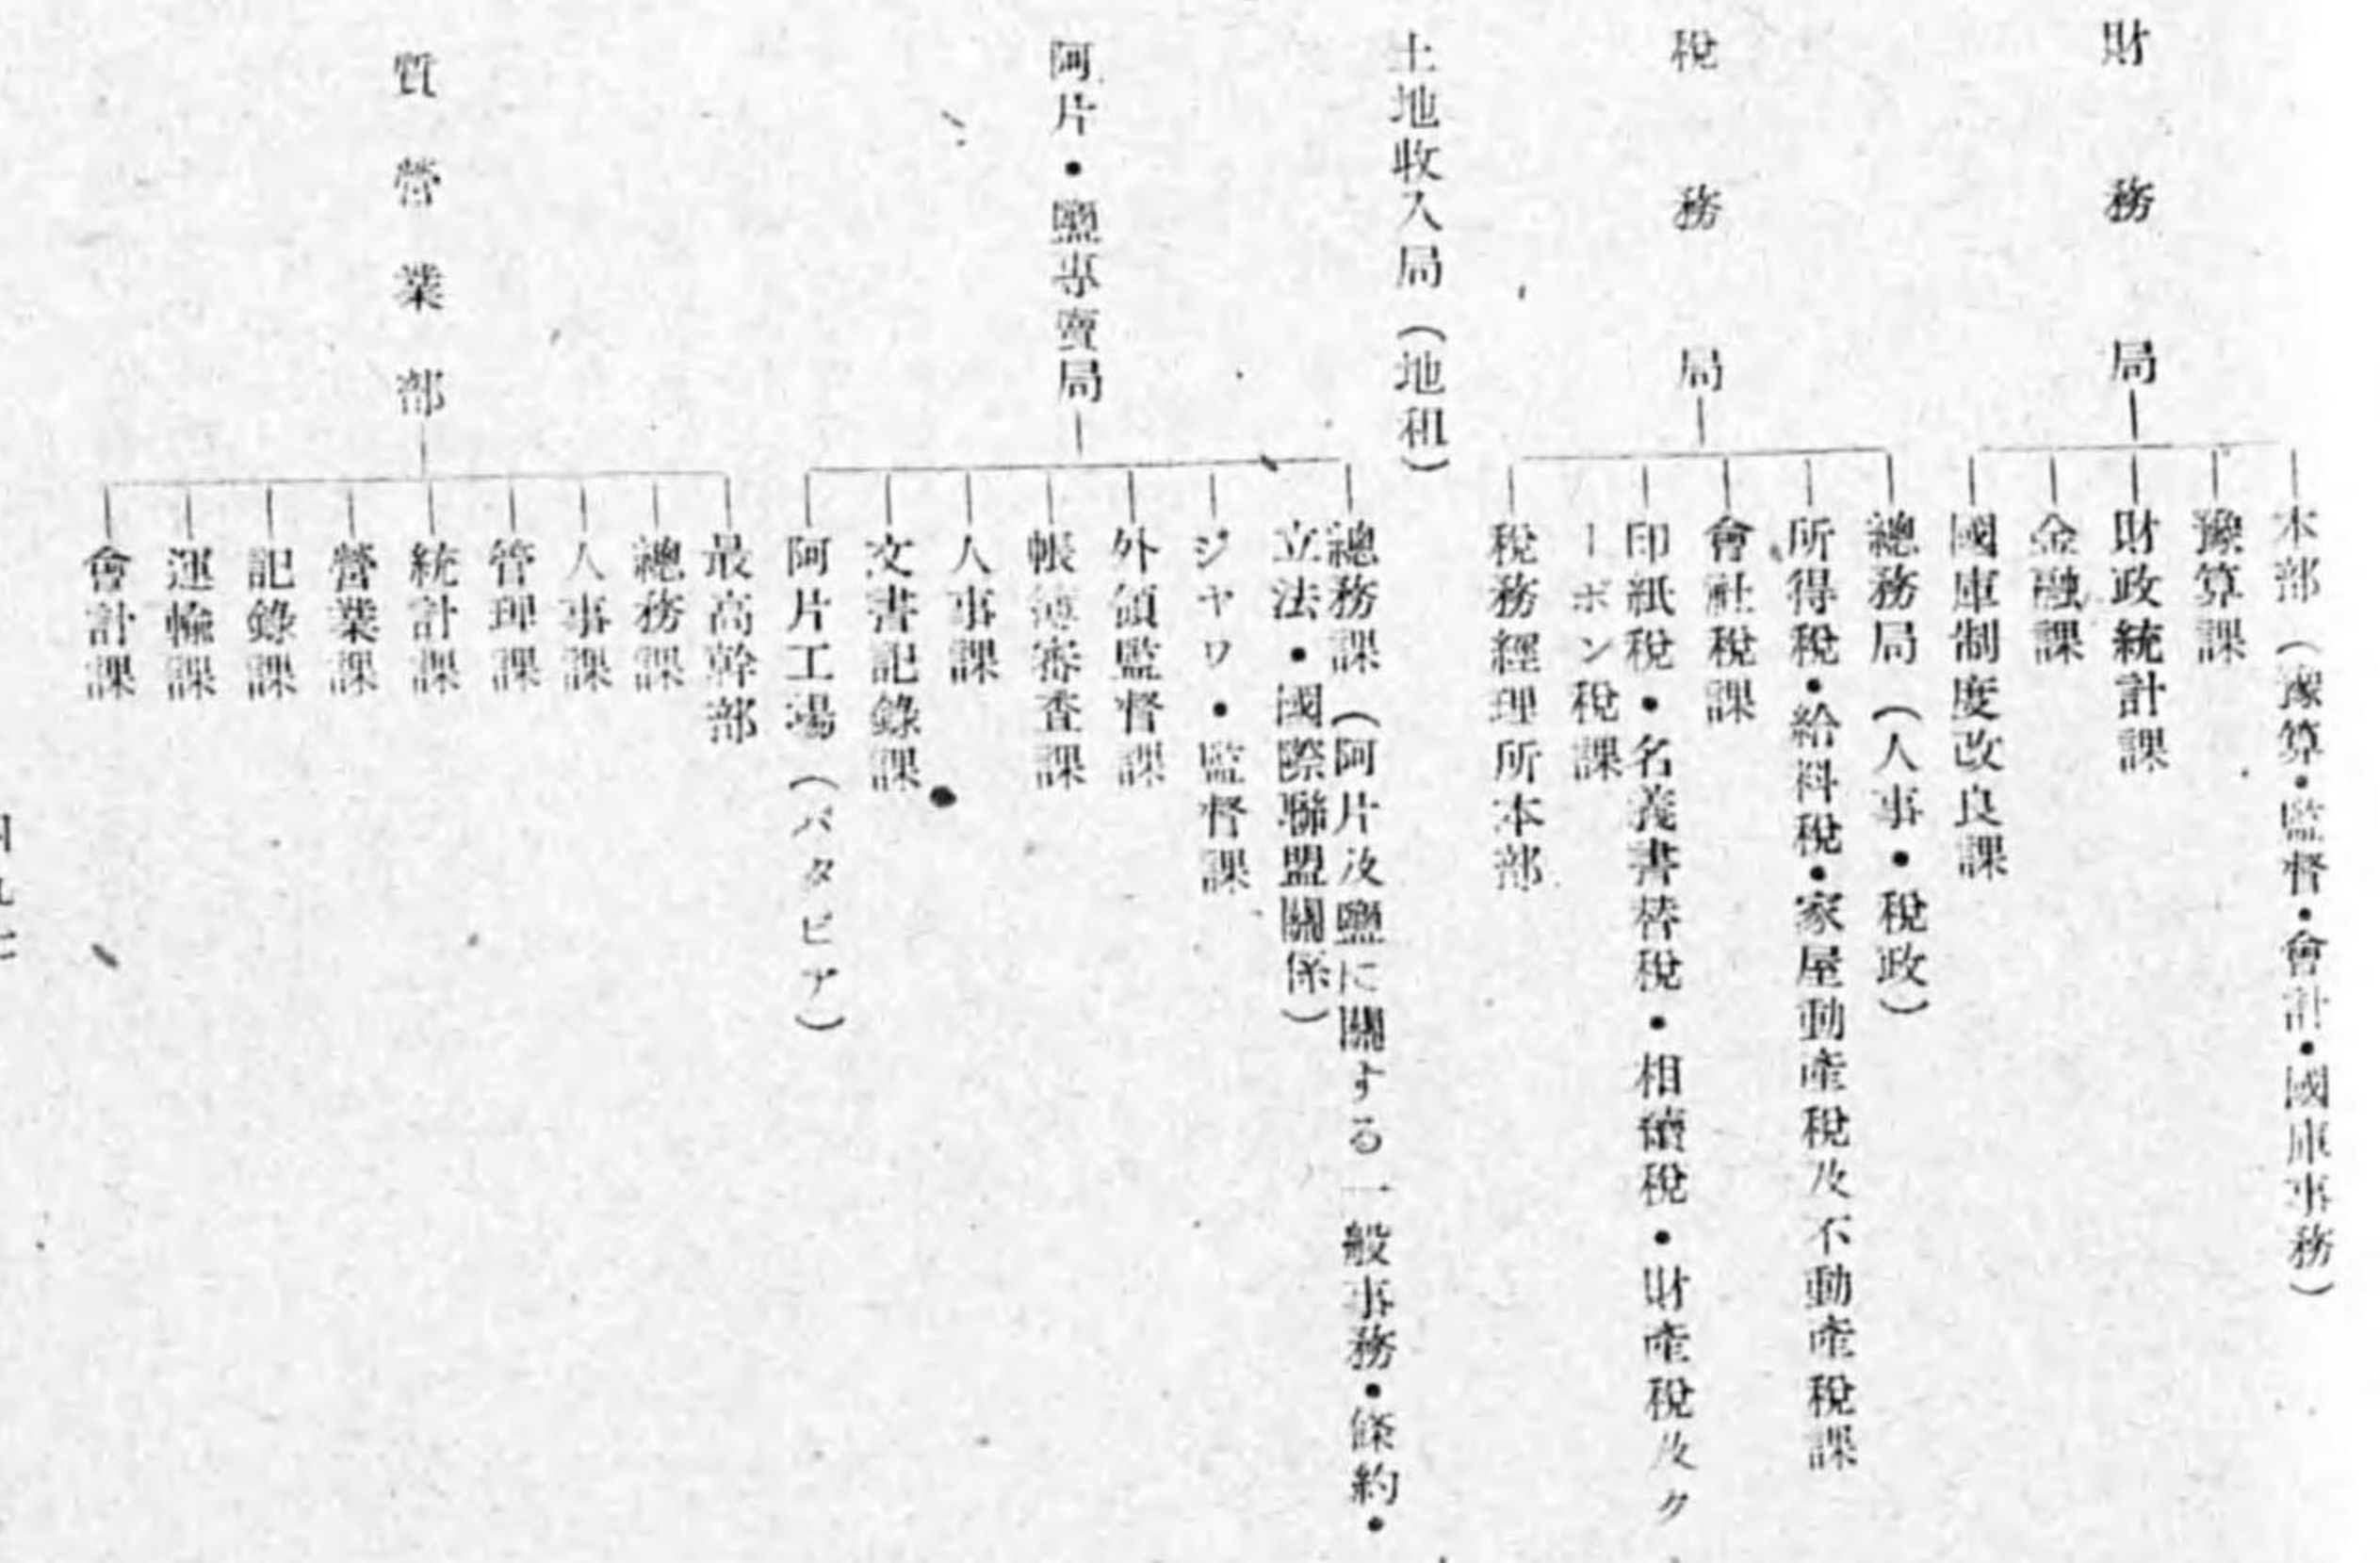 財務局
本部（豫算・監督・會計・國庫事務）
豫算課
財政統計課
金融課
國庫制度改良課
稅務局
總務局（人事・稅政）
所得稅・給料稅・家屋動產稅及不動產稅課
會社稅課
印紙稅・名義書替稅・相續稅・財產稅及ク
ーポン稅課
稅務經理所本部
土地收入局（地租）
阿片・鹽專賣局
總務課（阿片及鹽に關する一般事務・條約・
立法・國際聯盟關係）
ジヤワ・監督課
外領監督課
帳簿審査課
人事課
文書記錄課
阿片工場（バタビア）
質營業部
最高幹部
總務課
人事課
管理課
統計課
營業課
記錄課
運輸課
會計課